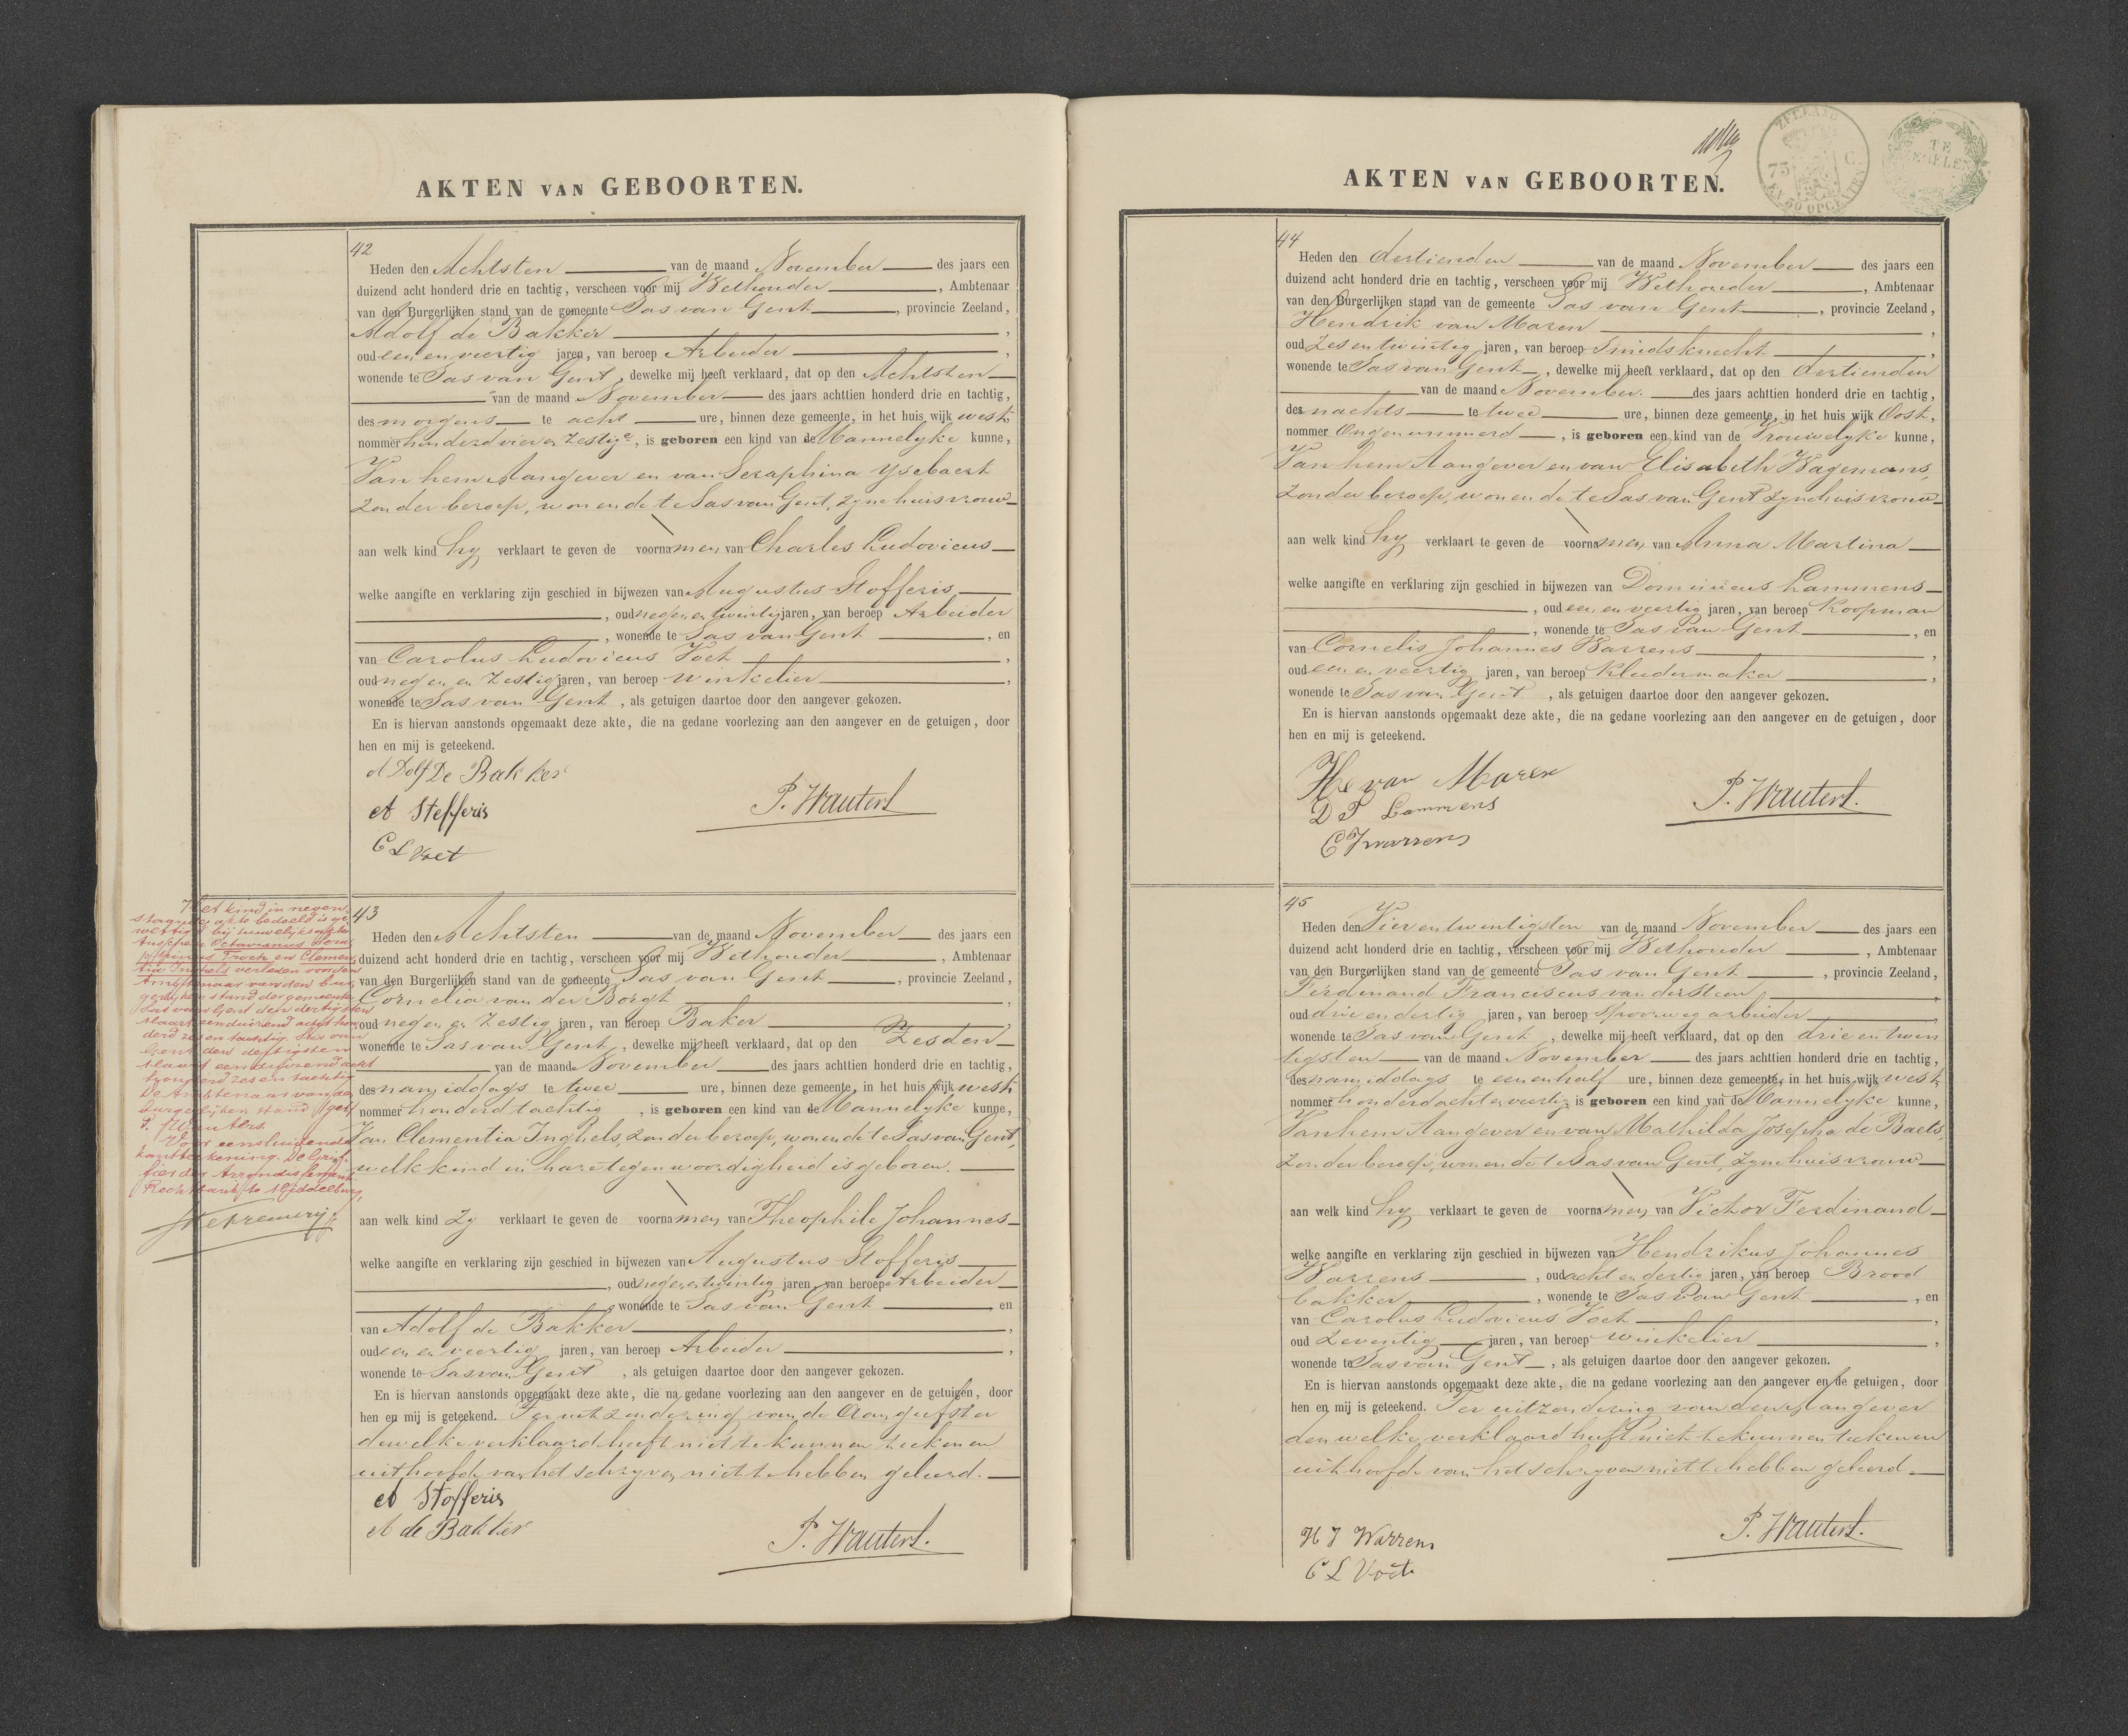 AKTEN VAN GEBOORTEN.
42
Heden den Achtsten van de maand November des jaars een
duizend acht honderd drie en tachtig, verscheen voor mij Wethouder, Ambtenaar
van den Burgerlijken stand van de gemeente Sas van Gent, provincie Zeeland,
Adolf de Bakker,
oud een en veertig jaren, van beroep Arbeider,
wonende te Sas van Gent, dewelke mij heeft verklaard, dat op den Achtsten
van de maand November des jaars achttien honderd drie en tachtig,
des morgens te acht ure, binnen deze gemeente, in het huis wijk west,
nommer honderd vier en zestig a, is geboren een kind van de Mannelyke kunne,
Van hem Aangever en van Seraphina Ysebaert
zonder beroep, wonende te Sas van Gent, zyne huisvrouw
aan welk kind hy verklaart te geven de voornamen van Charles Ludovicus
welke aangifte en verklaring zijn geschied in bijwezen van Augustus Stofferis
, oud negen en twintig jaren, van beroep Arbeider
, wonende te Sas van Gent, en
van Carolus Ludovicus Voet,
oud negen en zestig jaren, van beroep winkelier,
wonende te Sas van Gent, als getuigen daartoe door den aangever gekozen.
En is hiervan aanstonds opgemaakt deze akte, die na gedane voorlezing aan den aangever en de getuigen, door
hen en mij is geteekend.
A Dolf De Bakker
A Stofferis
P. Wauters
C L Voet
Het kind in neven
staande akte bedoeld is ge
wettigd bij huwelijksakte
tusschen Octavianus Sera
phinus Troch en Clemen
tia Inghels verleden voor den
Ambtenaar van den bur
gerlijken stand der gemeente
Sas van Gent den dertigsten
Maart eenduizend acht hon
derd zes en tachtig. Sas van
Gent den dertigsten
Maart eenduizend acht
honderd zes en tachtig
De Ambtenaar van den
burgerlijken stand (get)
P. Wauters.
Voor eensluidende
kantteekening. De Grif
fier der Arrondissements
Rechtbank te Middelburg,
43
Heden den Achtsten van de maand November des jaars een
duizend acht honderd drie en tachtig, verscheen voor mij Wethouder, Ambtenaar
van den Burgerlijken stand van de gemeente Sas van Gent, provincie Zeeland,
Cornelia van der Borgt,
oud negen en zestig jaren, van beroep Baker,
wonende te Sas van Gent, dewelke mij heeft verklaard, dat op den Zesden
van de maand November des jaars achttien honderd drie en tachtig,
des namiddags te twee ure, binnen deze gemeente, in het huis wijk west
nommer honderd tachtig, is geboren een kind van de Mannelyke kunne,
Van Clementia Inghels, zonder beroep, wonende te Sas van Gent,
welk kind in hare tegenwoordigheid is geboren.
aan welk kind zy verklaart te geven de voornamen van Theophile Johannes
welke aangifte en verklaring zijn geschied in bijwezen van Augustus Stofferis
, oud negen en twintig jaren, van beroep Arbeider
, wonende te Sas van Gent en
van Adolf de Bakker,
oud een en veertig jaren, van beroep Arbeider,
wonende te Sas van Gent, als getuigen daartoe door den aangever gekozen.
En is hiervan aanstonds opgemaakt deze akte, die na gedane voorlezing aan den aangever en de getuigen, door
hen en mij is geteekend. Ter uitzondering van de Aangeefster
dewelke verklaard heeft niet te kunnen teekenen
uit hoofde van het schryven niet te hebben geleerd.
A Stofferis
A de Bakker
P. Wauters.
ZEELAND
75 C.
EN 50 OPCENTEN
TE ZEGELEN
AKTEN VAN GEBOORTEN.
44
Heden den dertienden van de maand November des jaars een
duizend acht honderd drie en tachtig, verscheen voor mij Wethouder, Ambtenaar
van den Burgerlijken stand van de gemeente Sas van Gent, provincie Zeeland,
Hendrik van Maren,
oud zes en twintig jaren, van beroep Smidsknecht,
wonende te Sas van Gent, dewelke mij heeft verklaard, dat op den dertienden
van de maand November. des jaars achttien honderd drie en tachtig,
des nachts te twee ure, binnen deze gemeente, in het huis wijk Oost,
nommer Ongenummerd, is geboren een kind van de Vrouwelyke kunne,
Van hem Aangever en van Elisabeth Wagemans,
zonder beroep, wonende te Sas van Gent zyne huisvrouw
aan welk kind hy verklaart te geven de voornamen van Anna Martina
welke aangifte en verklaring zijn geschied in bijwezen van Dominicus Lammens
, oud een en veertig jaren, van beroep Koopman
, wonende te Sas van Gent, en
van Cornelis Johannes Warrens,
oud een en veertig jaren, van beroep kleedermaker,
wonende te Sas van Gent, als getuigen daartoe door den aangever gekozen.
En is hiervan aanstonds opgemaakt deze akte, die na gedane voorlezing aan den aangever en de getuigen, door
hen en mij is geteekend.
He van Maren
D P Lammens
P. Wauters.
C J warrens
45
Heden den Vier en twintigsten van de maand November des jaars een
duizend acht honderd drie en tachtig, verscheen voor mij Wethouder, Ambtenaar
van den Burgerlijken stand van de gemeente Sas van Gent, provincie Zeeland,
Ferdinand Franciscus van der Steen,
oud drie en dertig jaren, van beroep Spoorweg arbeider,
wonende te Sas van Gent, dewelke mij heeft verklaard, dat op den drie en twin
tigsten van de maand November des jaars achttien honderd drie en tachtig,
des namiddags te een en half ure, binnen deze gemeente, in het huis wijk west,
nommer honderd acht en veertig is geboren een kind van de Mannelyke kunne,
Van hem Aangever en van Mathilda Josepha de Baets,
zonder beroep, wonende te Sas van Gent, zyne huisvrouw
aan welk kind hy verklaart te geven de voornamen van Victor Ferdinand
welke aangifte en verklaring zijn geschied in bijwezen van Hendrikus Johannes
Warrens, oud acht en dertig jaren, van beroep Brood
bakker, wonende te Sas van Gent, en
van Carolus Ludovicus Voet,
oud zeventig jaren, van beroep winkelier,
wonende te Sas van Gent, als getuigen daartoe door den aangever gekozen.
En is hiervan aanstonds opgemaakt deze akte, die na gedane voorlezing aan den aangever en de getuigen, door
hen en mij is geteekend. Ter uitzondering van den Aangever
den welke verklaard heeft niet te kunnen teekenen
uit hoofde van het schryven niet te hebben geleerd.
P. Wauters.
H J Warrens
C L Voet